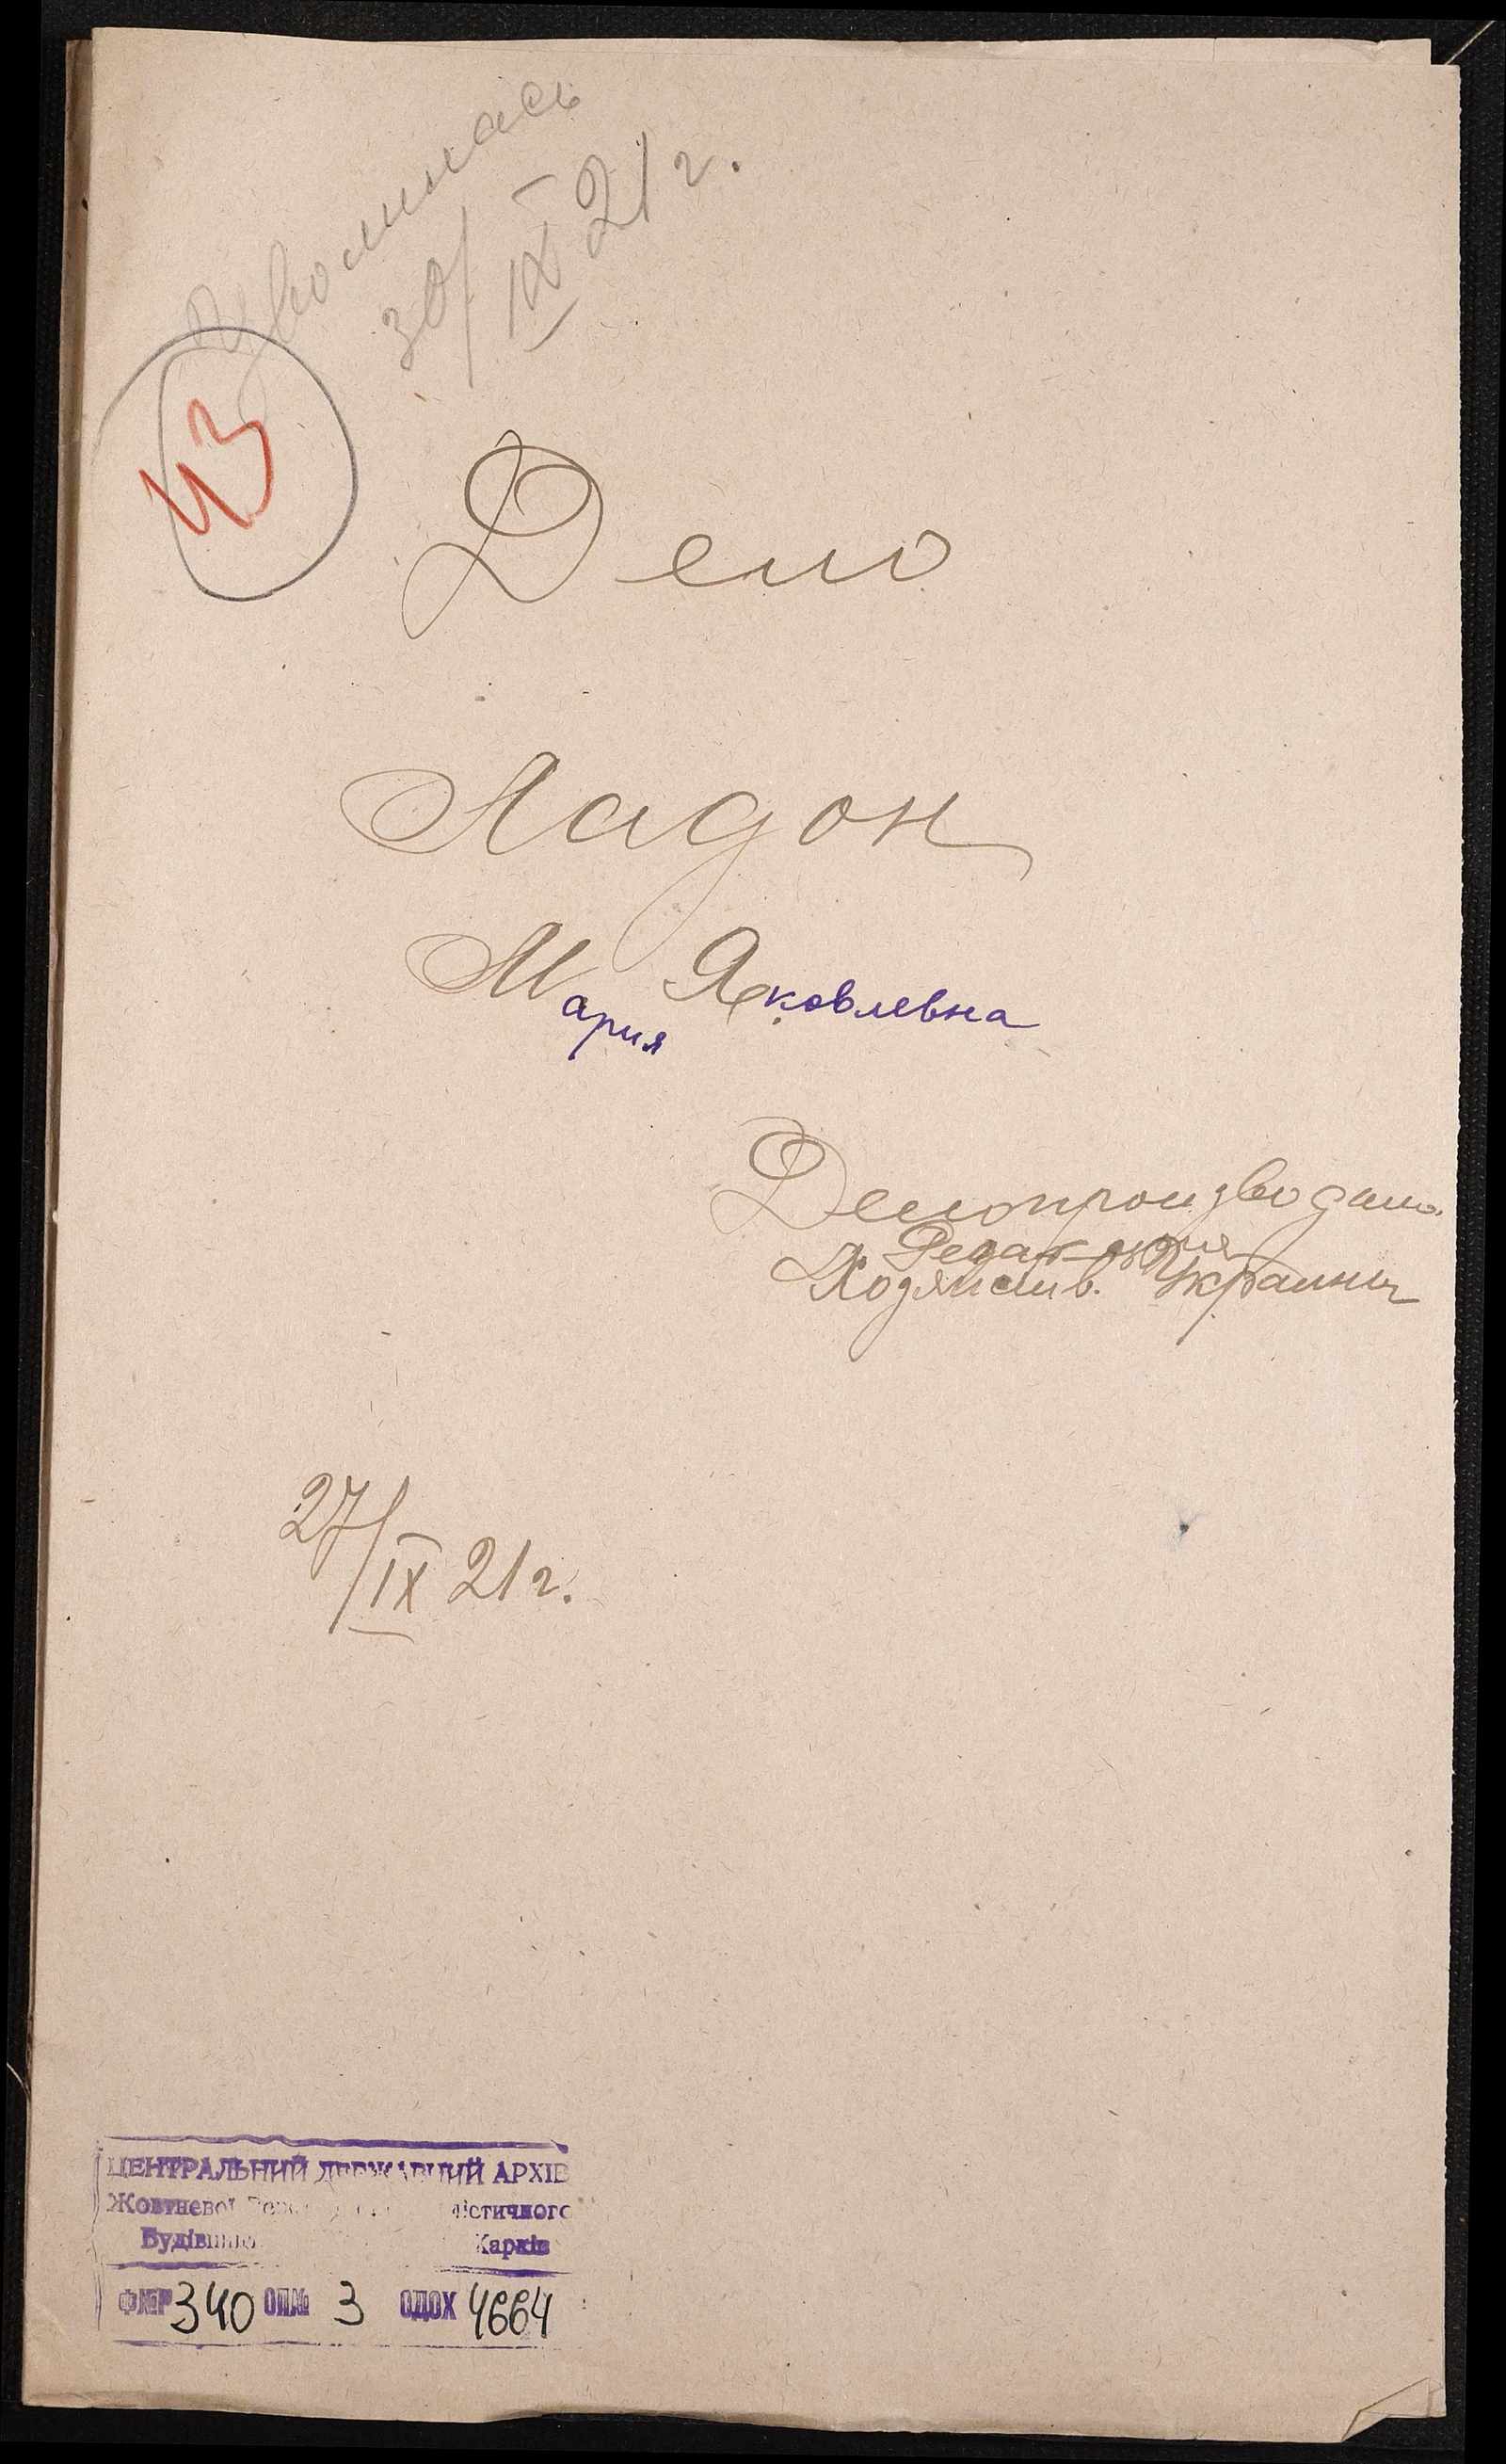 Уволилась
30/IX 21 г.
43
Дело
Ладон
Мария Яковлевна
Делопроизводит.
Редакция
Хозяйств. Украины
27/IX 21 г.
ЦЕНТРАЛЬНИЙ ДЕРЖАВНИЙ АРХІВ
Жовтневої
Харків
Ф№Р 340 ОП№ 3 ОДОХ 4664